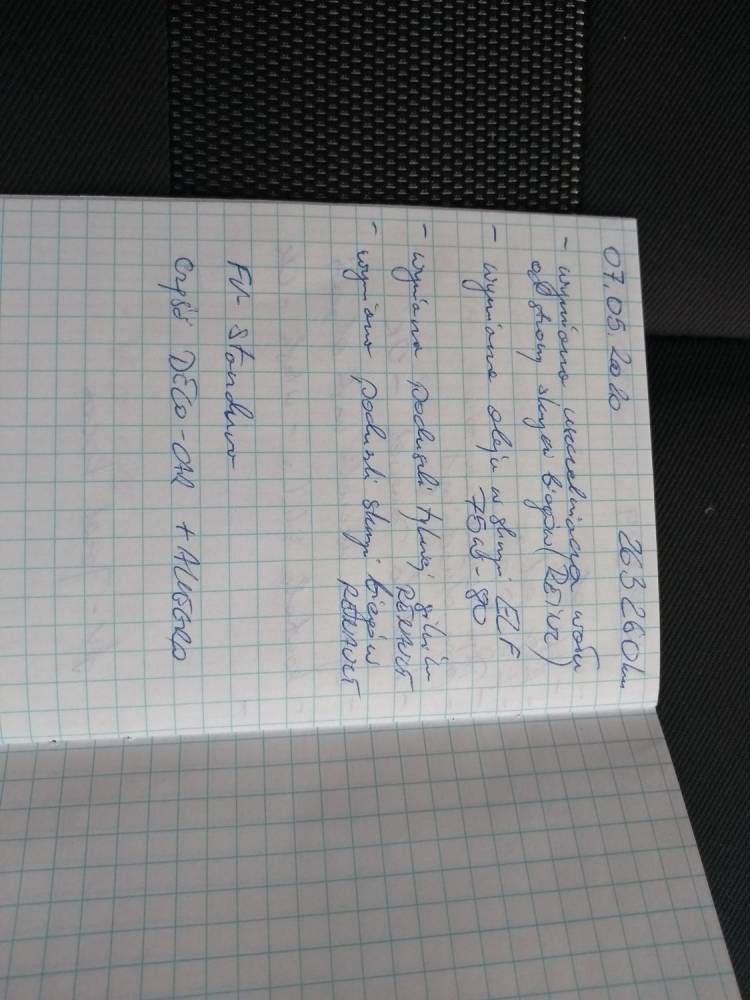 07.05.2020 263 260km
- wymiana uszczelniacza wału
od strony skrzyni biegów (
- wymiana oleju w skrzyni ELF
75W-80
- wymiana poduszki tylnej silnika
RENAULT
- wymiana poduszki skrzyni biegów
RENAULT
FV-
Część DECO-CAR + ALLEGRO